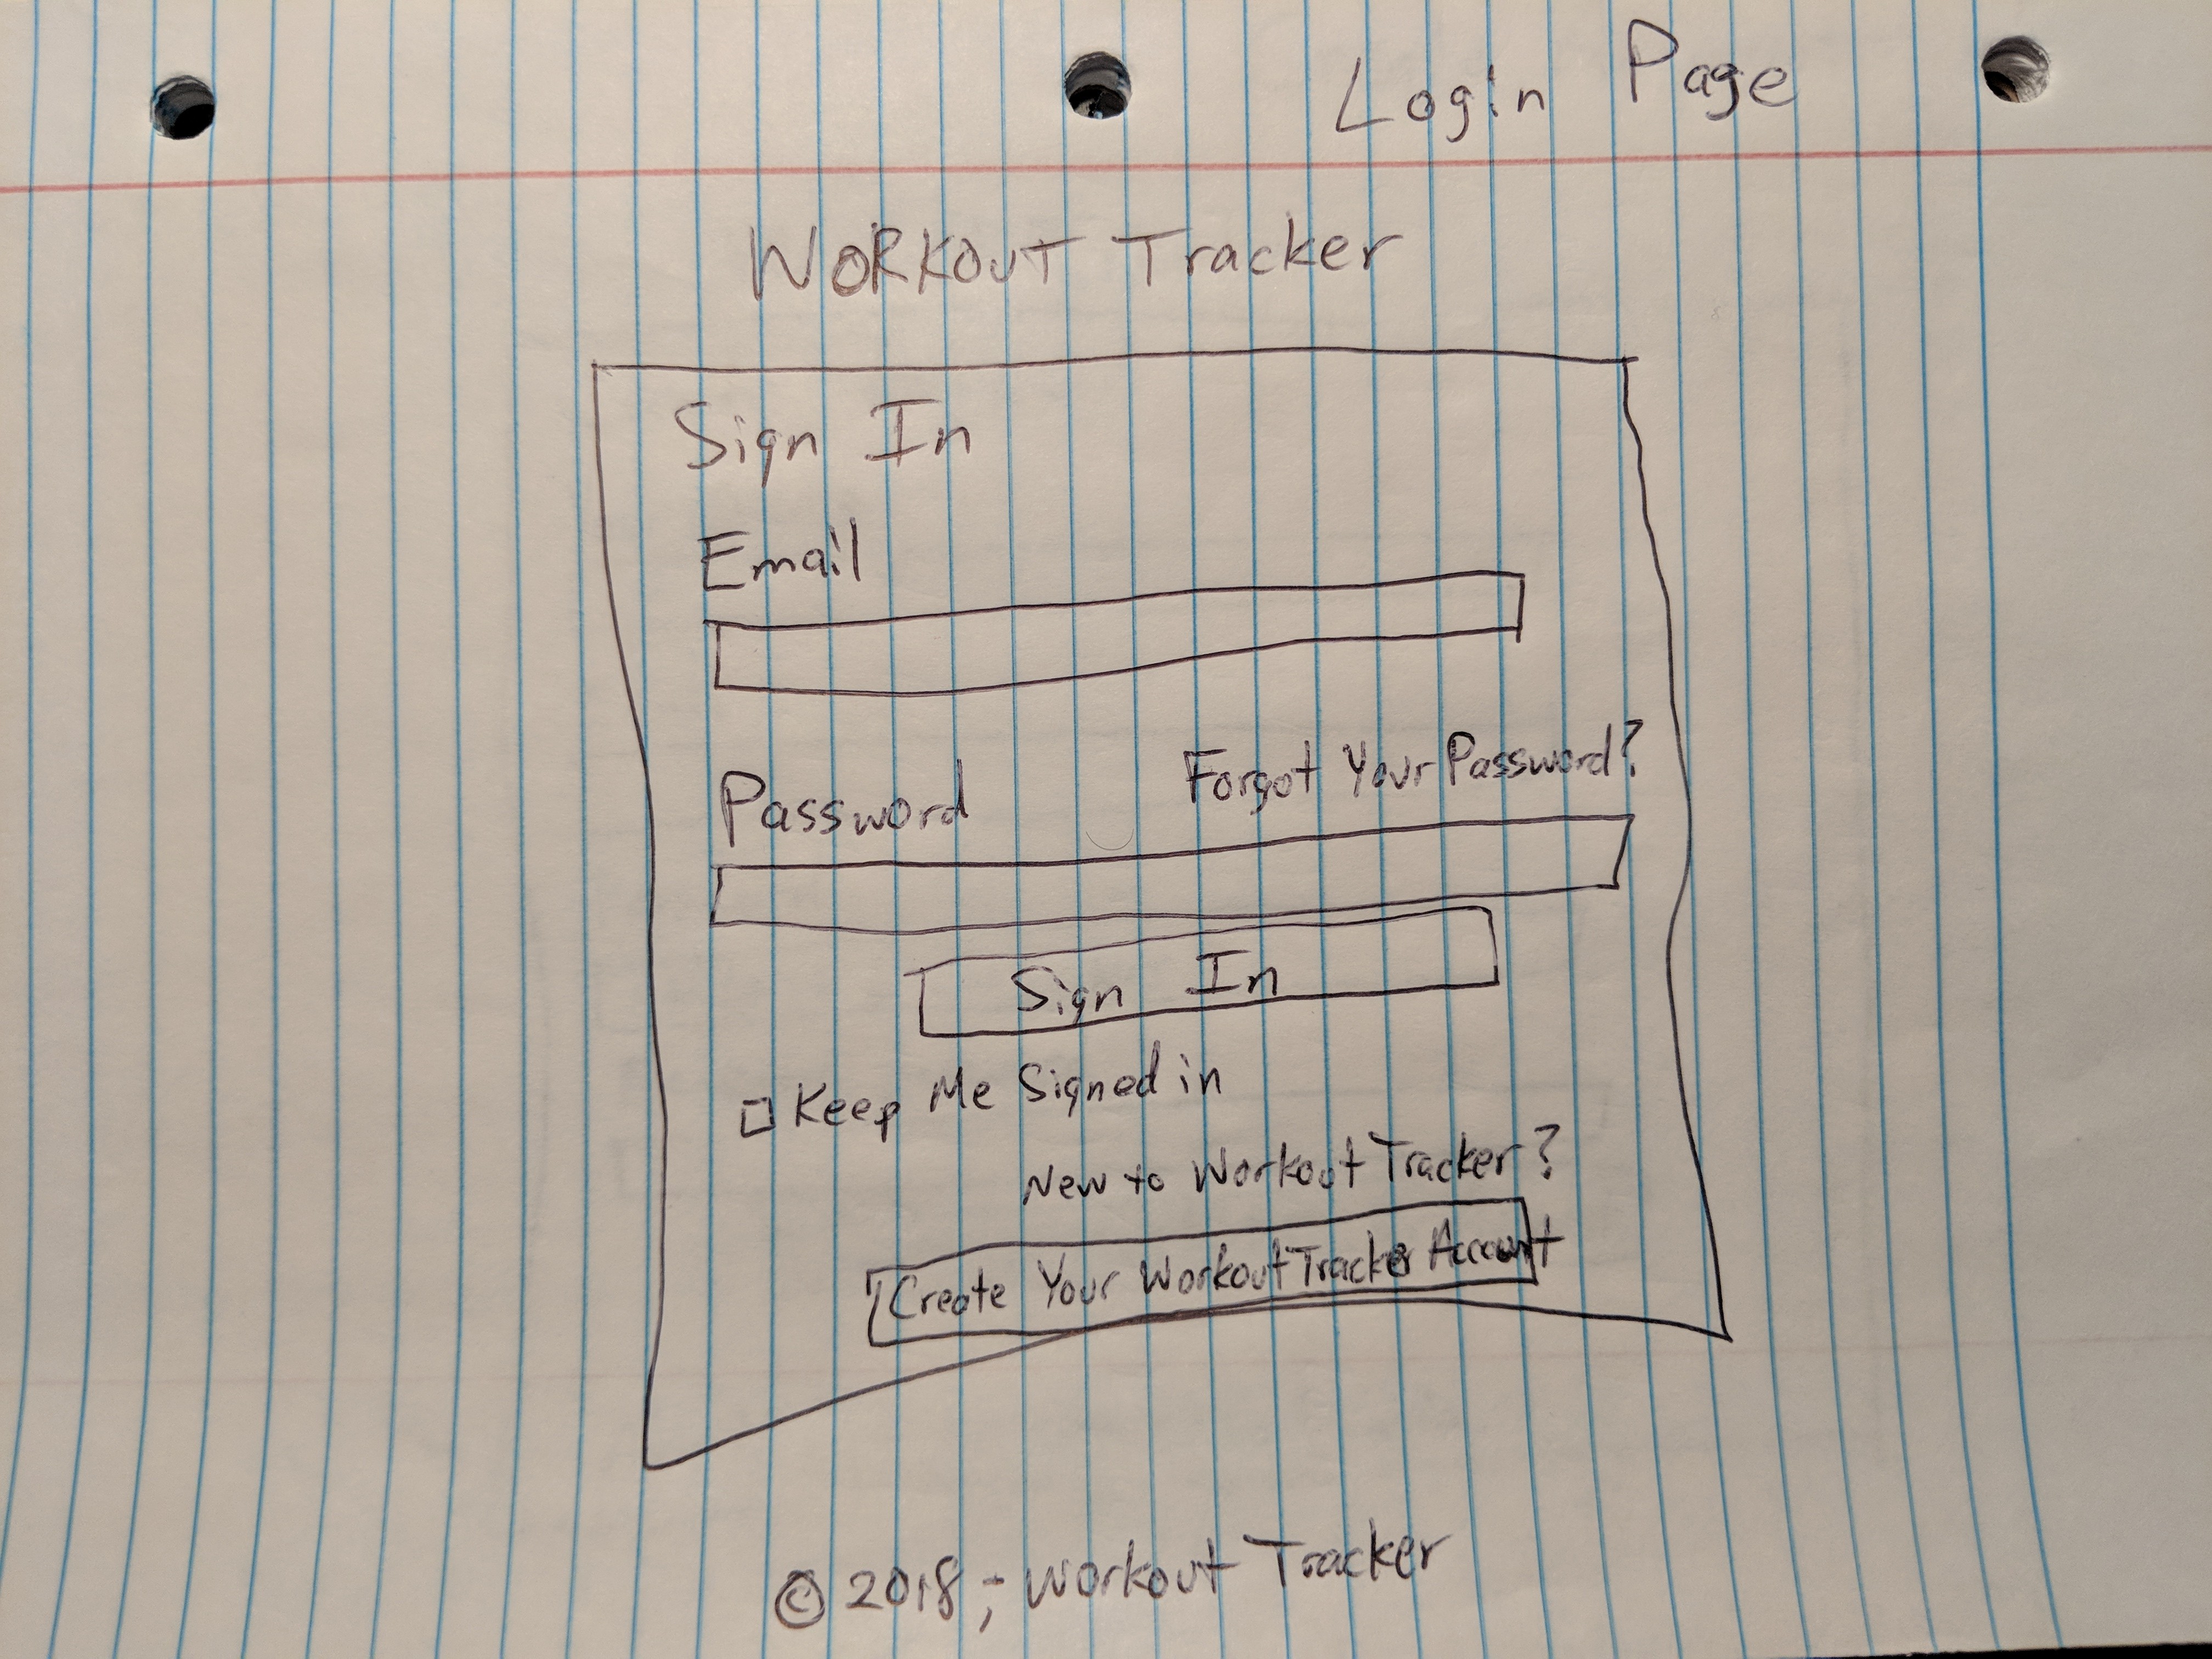 Login Page
WORKOUT Tracker
Sign In
Email
Forgot Your Password?
Password
Sign In
Keep Me Signed in
New to Workout Tracker?
Create Your Workout Tracker Account
© 2018; Workout Tracker